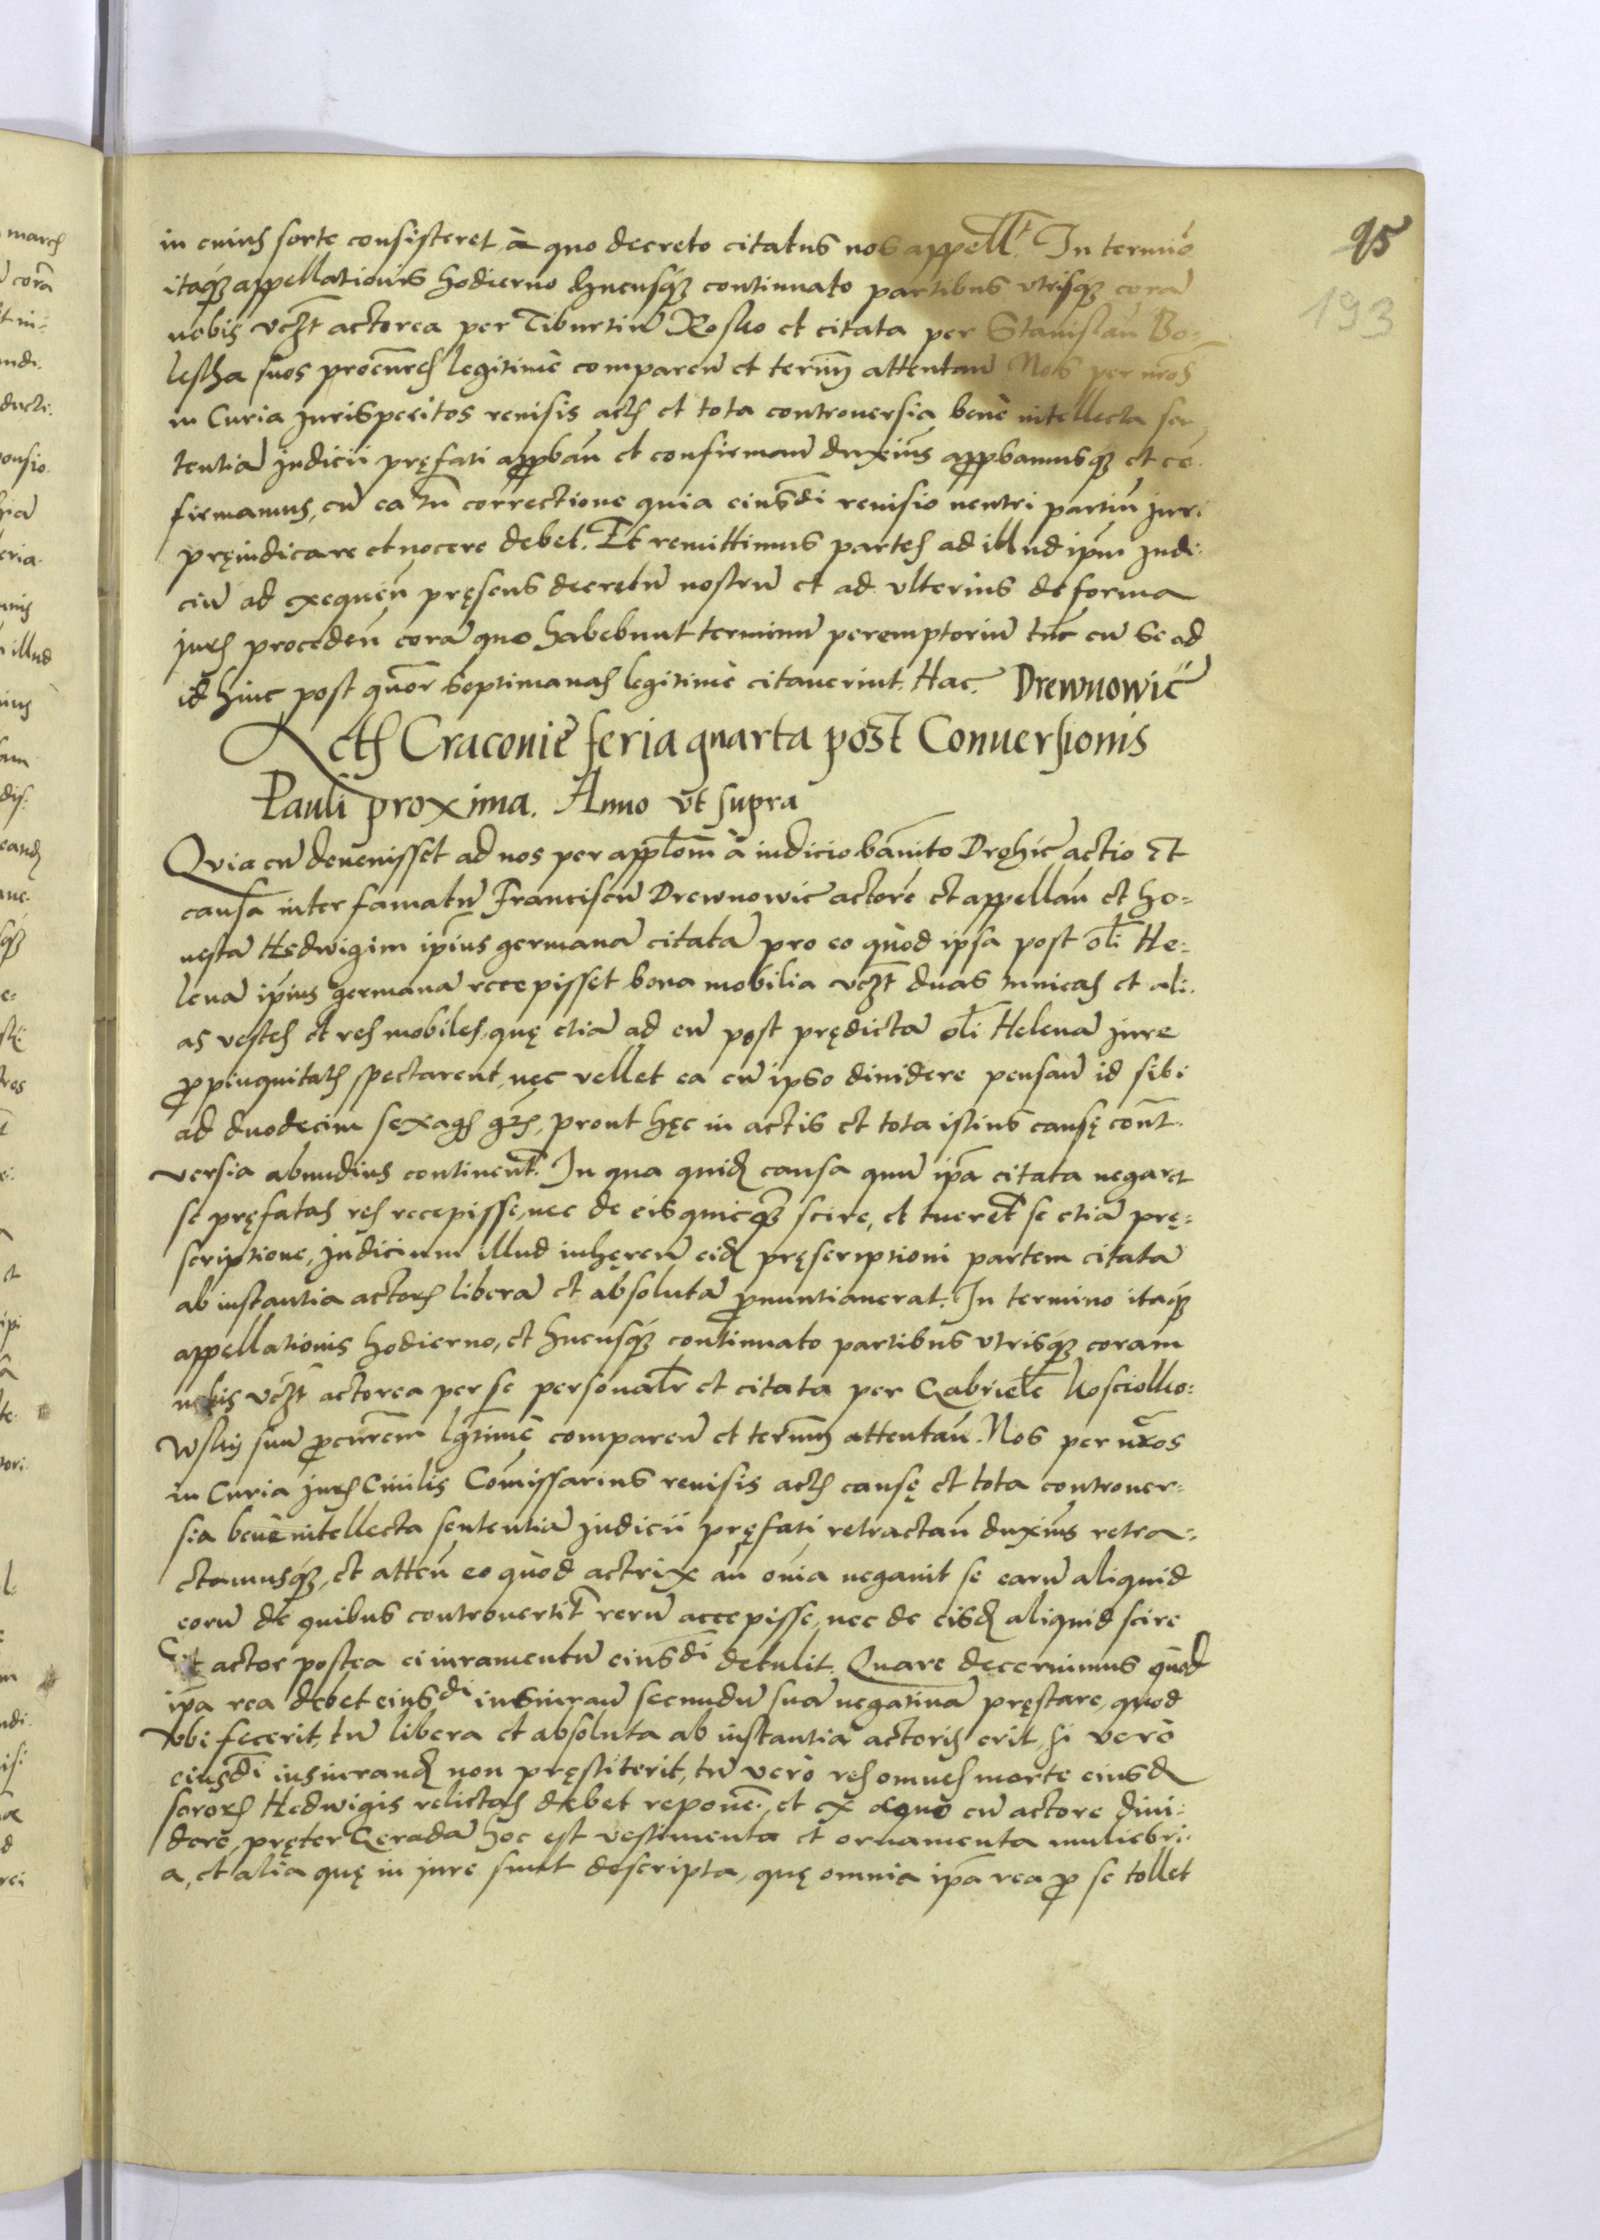 95
193
in cuius sorte consisteret à quo decreto citatus nos appell͞t. In termio͞
itaq́ꝫ appellationis hodierno hucusq́ꝫ continuato partibus vtrisq́ꝫ cora͞
nobis vcꝫt actorea per Tiburtiu͞ Rosko et citata per Stanislau͞ Bo-
lesta suos procu͞res legitimè comparen͞ et termi͞n attentan͞ Nos per nr͞os
in Curia Jurisperitos reuisis actis et tota controuersia benè intellecta sen-
tentia͞ judicii pręfati approban͞ et confirman͞ duxim͞s approbamusq́ꝫ et co͞-
firmamus, cu͞ ea tn͞ correctione quia eiusd͞i reuisio neutri partiu͞ juri
pręiudicare et nocere debet. Et remittimus partes ad illud ip͞m judi-
ciu͞ ad exequen͞ pręsens decretu͞ nostru͞ et ad vlterius de forma
juris proceden͞ cora͞ quo habebunt terminu͞ peremptoriu͞ tu͞c cu͞ se ad
id hinc post quo͞r septimanas legitimè citauerint. Hac.   Drewnowic͞
Actis Craconię feria quarta post Conuersionis
Pauli proxima. Anno vt supra
Quia cu͞ deuenisset ad nos per appl͞om à iudicio ban͞ito Drohic͞ actio Et
causa inter famatu͞ Franciscu͞ Drewnowic actore͞ et appellan͞ et ho-
nesta͞ Hedwigim ip͞ius germana͞ citata͞ pro eo quòd ipsa post ol͞i He-
lena͞ ip͞ius germana͞ recepisset bona mobilia vcꝫt duas tunicas et ali-
as vestes et res mobiles, quę etia͞ ad eu͞ post prędicta͞ ol͞i Helena͞ jure
ꝓpinquitatis spectarent, nec vellet ea cu͞ ipso diuidere pensan͞ id sibi
ad duodecim sexag͞s gr͞s, prout hęc in actis et tota istius causę cont͞-
versia abundius continent͞. In qua quid͞ causa quu͞ ip͞a citata negaret
se pręfatas res recepisse, nec de eis quicq͞ꝫ scire, et tueret͞ se etia͞ prę-
scriptione, Judicium illud inhęren͞ eid͞ pręscriptioni partem citata͞
ab instantia actoris libera͞ et absoluta͞ ꝓnuntiauerat. In termino itaq́ꝫ
appellationis hodierno, et hucusq́ꝫ continuato partibus vtrisq́ꝫ coram
nobis vcꝫt actorea per se personal͞r et citata per Gabriele͞ Kosciolko-
wsky suu͞ ꝓcur͞em lg͞timè comparen͞ et termi͞n attentan͞. Nos per nr͞os
in Curia juris Ciuilis Com͞issarius reuisis actis causę et tota controuer-
sia benè intellecta sententia͞ judicii pręfati retractan͞ duxim͞s retra-
ctamusq́ꝫ, et atten͞ eo quòd actrix an͞ om͞ia negauit se earu͞ aliquid
eoru͞ de quibus controuertit͞ reru͞ accepisse, nec de eisd͞ aliquid scire
Et actor postea ei iuramentu͞ eiusd͞i detulit. Quare decernimus quòd
ip͞a rea debet eiusd͞i iusiuran͞ secundu͞ sua͞ negatiua͞ pręstare, quod
vbi fecerit, tu͞ libera et absoluta ab instantia actoris erit, si verò
eiusd͞i iusiurand͞ non pręstiterit, tu͞ verò res omnes morte eiusd͞
sororis Hedwigis relictas debet repone͞., et ex ęquo cu͞ actore diui-
dere, pręter Gerada͞ hoc est vestimenta et ornamenta muliebri-
a, et alia quę in jure sunt descripta, quę omnia ip͞a rea ꝓ se tollet